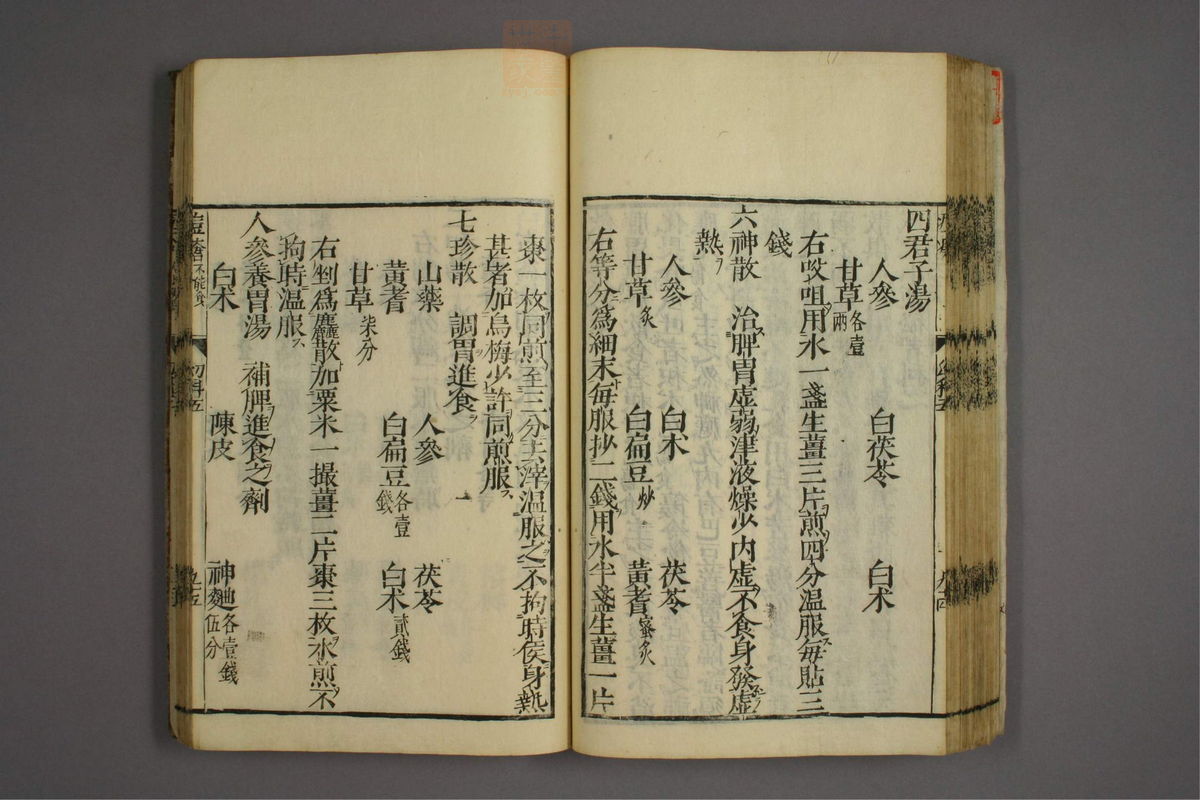 四君子湯
人參　白茯苓　白术
甘草各壹兩
右㕮咀用水一盞生薑三片煎四分温服每貼三
錢
六神散　治脾胃虚弱津液燥少内虚不食身發虚
熱
人參　白术　茯苓
甘草炙　白扁豆炒　黃耆蜜炙
右等分爲細末每服抄二錢用水半盞生薑一片
棗一枚同煎至三分去滓温服之不拘時侯身熱
甚者加烏梅少許同煎服
七珍散　調胃進食
山藥　人參　茯苓
黃耆　白扁豆各壹錢　白术貳錢
甘草柒分
右剉爲麤散加粟米一撮薑二片棗三枚水煎不
拘時温服
人參養胃湯　補脾進食之劑
白术　陳皮　神麯各壹錢伍分